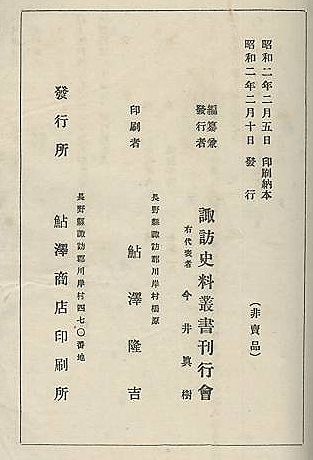 昭和二年二月五日印刷納本
昭和二年二月十日發行
(非賣品)
編纂兼
發行者
諏訪史料叢書刊行會
右代表者 今井眞樹
長野縣諏訪郡川岸村橋原
印刷者 鮎澤隆吉
長野縣諏訪郡川岸村四七〇番地
發行所 鮎澤商店印刷所